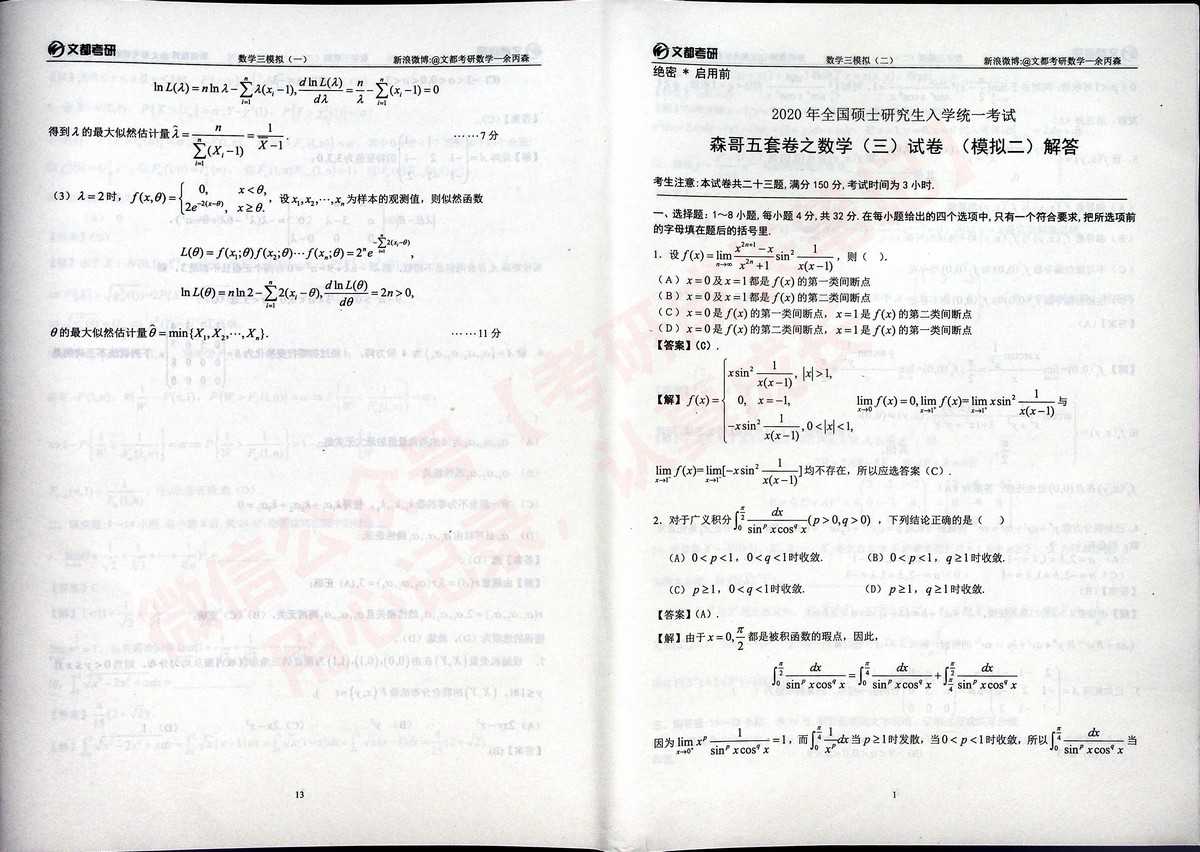 文都考研
数学三模拟（一）
新浪微博:@文都考研数学—余丙森
ln L(λ) = n ln λ − ∑_{i=1}^{n} λ(x_i −1), d ln L(λ)/dλ = n/λ − ∑_{i=1}^{n} (x_i −1) = 0
得到 λ 的最大似然估计量 λ̂ = n/∑_{i=1}^{n}(X_i −1) = 1/(X̄ −1) . ……7 分
（3）λ = 2 时， f(x,θ) = { 0, x < θ, 2e^{−2(x−θ)}, x ≥ θ. ，设 x₁,x₂,⋯,xₙ 为样本的观测值，则似然函数
L(θ) = f(x₁;θ)f(x₂;θ)⋯f(xₙ;θ) = 2ⁿ e^{−∑_{i=1}^{n} 2(x_i−θ)} ,
ln L(θ) = n ln 2 − ∑_{i=1}^{n} 2(x_i −θ), d ln L(θ)/dθ = 2n > 0,
θ 的最大似然估计量 θ̂ = min{X₁, X₂,⋯, Xₙ}. ……11 分
13
文都考研
数学三模拟（二）
新浪微博:@文都考研数学—余丙森
绝密 * 启用前
2020 年全国硕士研究生入学统一考试
森哥五套卷之数学（三）试卷 （模拟二）解答
考生注意:本试卷共二十三题,满分 150 分,考试时间为 3 小时.
一、选择题: 1～8 小题,每小题 4 分,共 32 分.在每小题给出的四个选项中,只有一个符合要求,把所选项前
的字母填在题后的括号里.
1. 设 f(x) = lim_{n→∞} (x^{2n+1} − x)/(x^{2n} + 1) sin² 1/(x(x−1))，则（ ）.
（A）x = 0 及 x = 1 都是 f(x) 的第一类间断点
（B）x = 0 及 x = 1 都是 f(x) 的第二类间断点
（C）x = 0 是 f(x) 的第一类间断点，x = 1 是 f(x) 的第二类间断点
（D）x = 0 是 f(x) 的第二类间断点，x = 1 是 f(x) 的第一类间断点
【答案】(C).
【解】f(x) = { x sin² 1/(x(x−1)), |x| > 1, 0, x = −1, −x sin² 1/(x(x−1)), 0 < |x| < 1, lim_{x→0} f(x) = 0, lim_{x→1⁺} f(x) = lim_{x→1⁺} x sin² 1/(x(x−1)) 与
lim_{x→1⁻} f(x) = lim_{x→1⁻} [−x sin² 1/(x(x−1))] 均不存在，所以应选答案（C）.
2. 对于广义积分 ∫_0^{π/2} dx/(sin^p x cos^q x) (p > 0, q > 0) ，下列结论正确的是（ ）
(A) 0 < p < 1, 0 < q < 1 时收敛. (B) 0 < p < 1, q ≥ 1 时收敛.
(C) p ≥ 1, 0 < q < 1 时收敛. (D) p ≥ 1, q ≥ 1 时收敛.
【答案】(A).
【解】由于 x = 0, π/2 都是被积函数的瑕点，因此,
∫_0^{π/2} dx/(sin^p x cos^q x) = ∫_0^{π/4} dx/(sin^p x cos^q x) + ∫_{π/4}^{π/2} dx/(sin^p x cos^q x)
因为 lim_{x→0⁺} x^p 1/(sin^p x cos^q x) = 1，而 ∫_0^{π/4} 1/x^p dx 当 p ≥ 1 时发散，当 0 < p < 1 时收敛，所以 ∫_0^{π/4} dx/(sin^p x cos^q x) 当
1